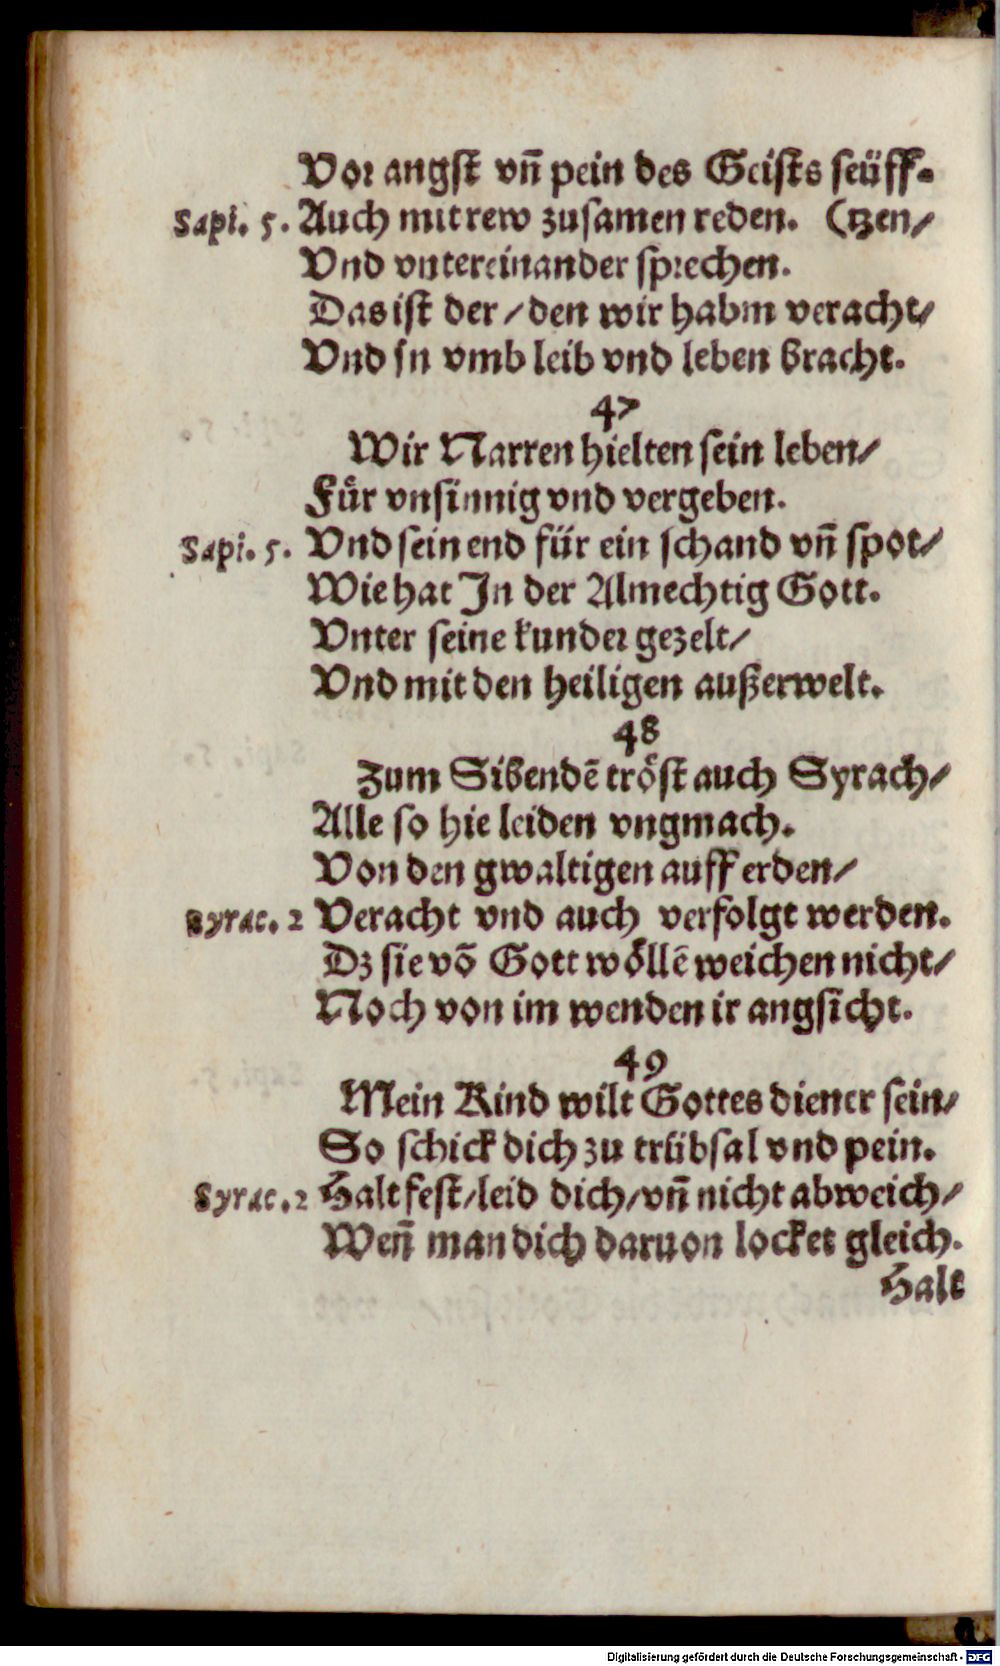 Vor angst vñ pein des Geists seüff-
Sapi. 5. Auch mit rew zusamen reden. (tzen/
Vnd vntereinander sprechen.
Das ist der / den wir habm veracht/
Vnd jn vmb leib vnd leben bracht.
47
Wir Narren hielten sein leben/
Für vnsinnig vnd vergeben.
Sapi. 5. Vnd sein end für ein schand vñ spot/
Wie hat In der Almechtig Gott.
Vnter seine kunder gezelt/
Vnd mit den heiligen außerwelt.
48
Zum Sibendē tröst auch Syrach/
Alle so hie leiden vngmach.
Von den gwaltigen auff erden/
Syrac. 2 Veracht vnd auch verfolgt werden.
Dz sie vō Gott wöllē weichen nicht/
Noch von im wenden ir angsicht.
49
Mein Kind wilt Gottes diener sein/
So schick dich zu trübsal vnd pein.
Syrac. 2 Halt fest/leid dich/vñ nicht abweich/
Weñ man dich daruon locket gleich.
Halt
Digitalisierung gefördert durch die Deutsche Forschungsgemeinschaft - DFG